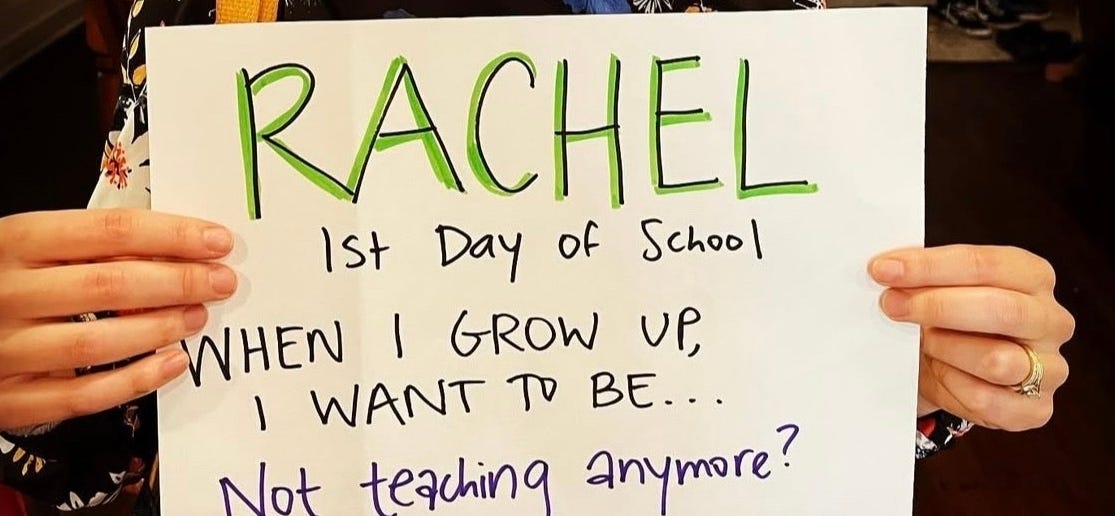 RACHEL
1st Day of School
WHEN I GROW UP,
I WANT TO BE...
Not teaching anymore?